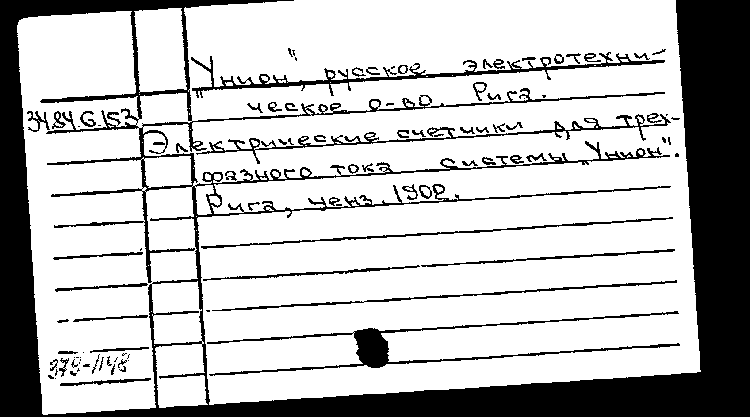 „Унион", русское электротехни-
ческое о-во. Рига.
34.84 G.153
Электрические счетчики для трех-
фазного тока системы „Унион".
Рига, ценз. 1902.
379-1148